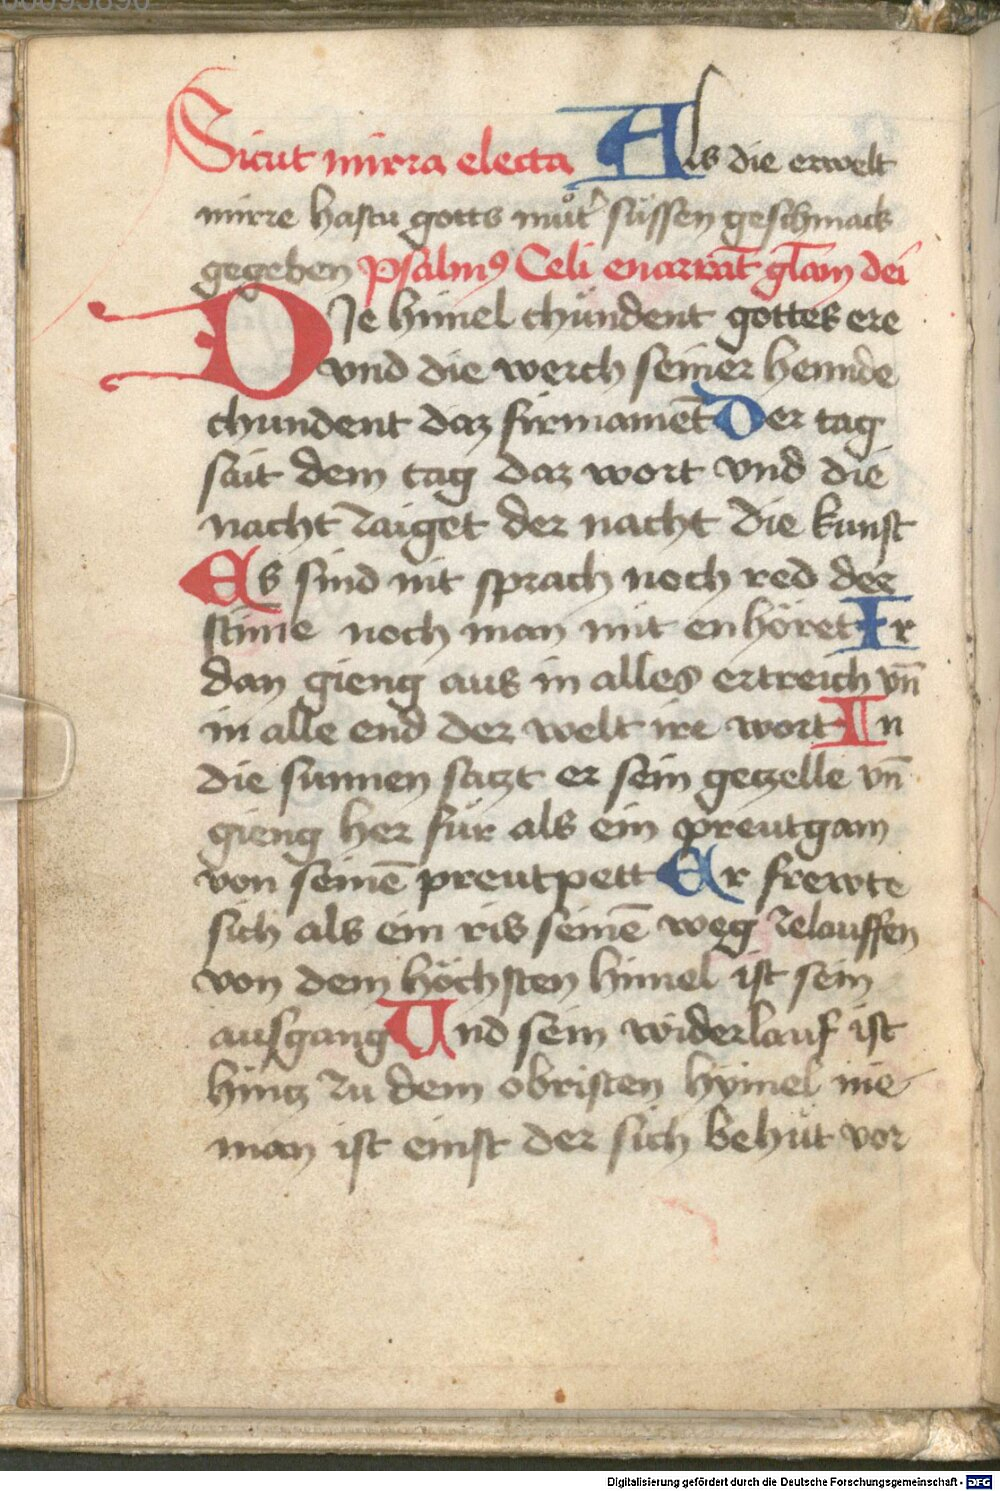 Sicut mirra electa Als die erwelt
mirre hastu gotts muͦt̾ süssen geschmack
gegeben Psalmꝰ Celi enarrāt gl̄am dei
DJe himel chündent gottes ere
vnd die werch seiner hennde
chundent daz firmamēt Der tag
sait dem tag daz wort vnd die
nacht zaiget der nacht die kunst
Es sind nit sprach noch red der
stime noch man mit enhöret Ir
dan gieng aus in alles ertreich vn̄
in alle end der welt ire wort In
die sunnen satzt er sein getzelle vn̄
gieng her für als ein preutgam
von seinē preutpett Er frewte
sich als ein ris seinē weg zelauffen
von dem höchsten himel ist sein
ausgang Vnd sein widerlauf ist
hintz zu dem obristen hymel nie
man ist einst der sich behüt vor
Digitalisierung gefördert durch die Deutsche Forschungsgemeinschaft - DFG